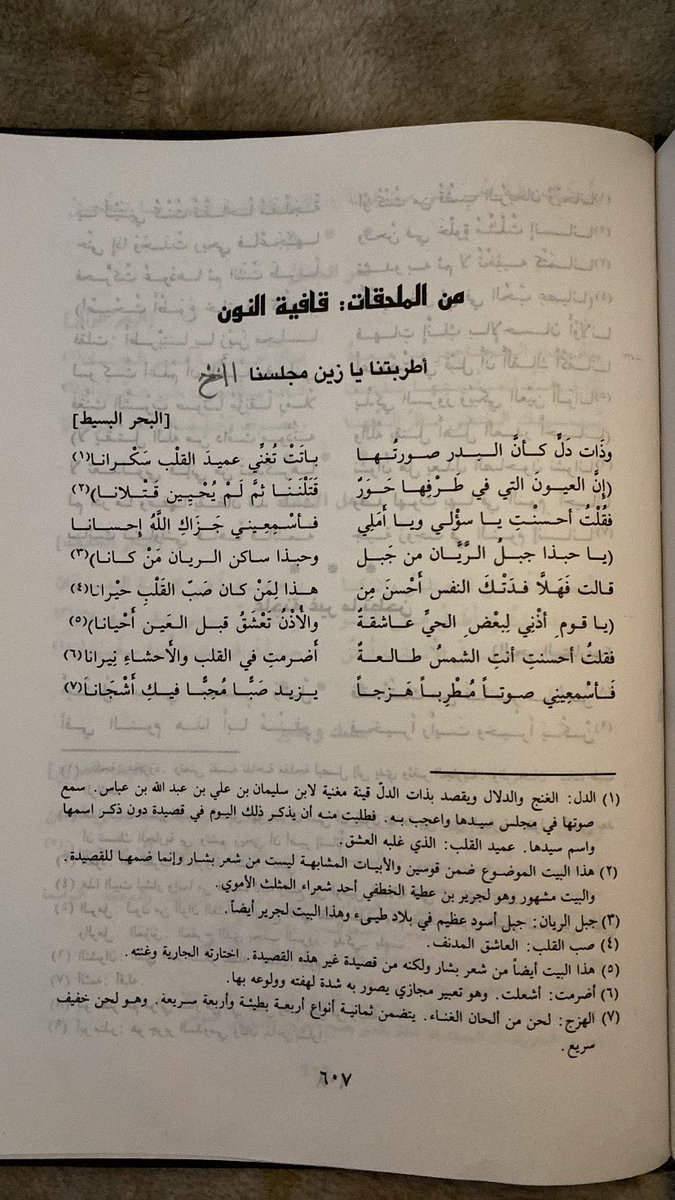 من الملحقات: قافية النون
أطربتنا يا زين مجلسنا الخ
[البحر البسيط]
وذَات دَلٍّ كـأنَّ البـدر صورتُـهـا باتَتْ تُغنِّي عميدَ القلْب سَكْـرانا (١)
(إنَّ العيـونَ التي في طَـرْفِها حَـوَرٌ قَتَلْنَنَـا ثمَّ لَمْ يُحْيِـين قَتْـلانا) (٢)
فقُلْتُ أحسنْتِ يـا سـؤْلي ويـا أَمَلِي فـأسْمِعِيني جَزَاكِ اللَّهُ إحسـانـا
(يـا حبذا جبـلُ الرَّيَّـان من جَبَـل وحبـذا ساكن الـريان مَنْ كـانا) (٣)
قالت فَهَلاَّ فدَتْكَ النفس أَحْسَنَ مِن هذا لِمَنْ كان صَبّ القَلْبِ حيْرانا (٤)
(يا قـومِ أذْنِي لِبعْضِ الحيِّ عـاشقةٌ والأُذْنُ تَعْشَقُ قبـل العَـين أَحْيانا) (٥)
فقلتُ أحسنتِ أنتِ الشمسُ طـالعـةٌ أَضرمتِ في القلب والأَحشاءِ نِيرانا (٦)
فَـأسْمعِيني صوتـاً مُطْرِبـاً هَـزجـاً يـزيـد صَبًّـا مُحِبًّـا فيـكِ أَشْجَانـاً (٧)
(١) الدل: الغنج والدلال ويقصد بذات الدلّ قينة مغنية لابن سليمان بن علي بن عبد الله بن عباس. سمع
صوتها في مجلس سيدها واعجب بـه. فطلبت منـه أن يذكر ذلك اليوم في قصيدة دون ذكر اسمها
واسم سيدها. عميد القلب: الذي غلبه العشق.
(٢) هذا البيت الموضوع ضمن قوسين والأبيات المشابهة ليست من شعر بشار وإنما ضمها للقصيدة.
والبيت مشهور وهو لجرير بن عطية الخطفي أحد شعراء المثلث الأموي.
(٣) جبل الريان: جبل أسود عظيم في بلاد طيىء وهذا البيت لجرير أيضاً.
(٤) صب القلب: العاشق المدنف.
(٥) هذا البيت أيضاً من شعر بشار ولكنه من قصيدة غير هذه القصيدة. اختارته الجارية وغنته.
(٦) أضرمت: أشعلت. وهو تعبير مجازي يصور به شدة لهفته وولوعه بها.
(٧) الهزج: لحن من ألحان الغناء. يتضمن ثمـانية أنواع أربعـة بطيئة وأربعة سريعة. وهـو لحن خفيف
سريع.
٦٠٧